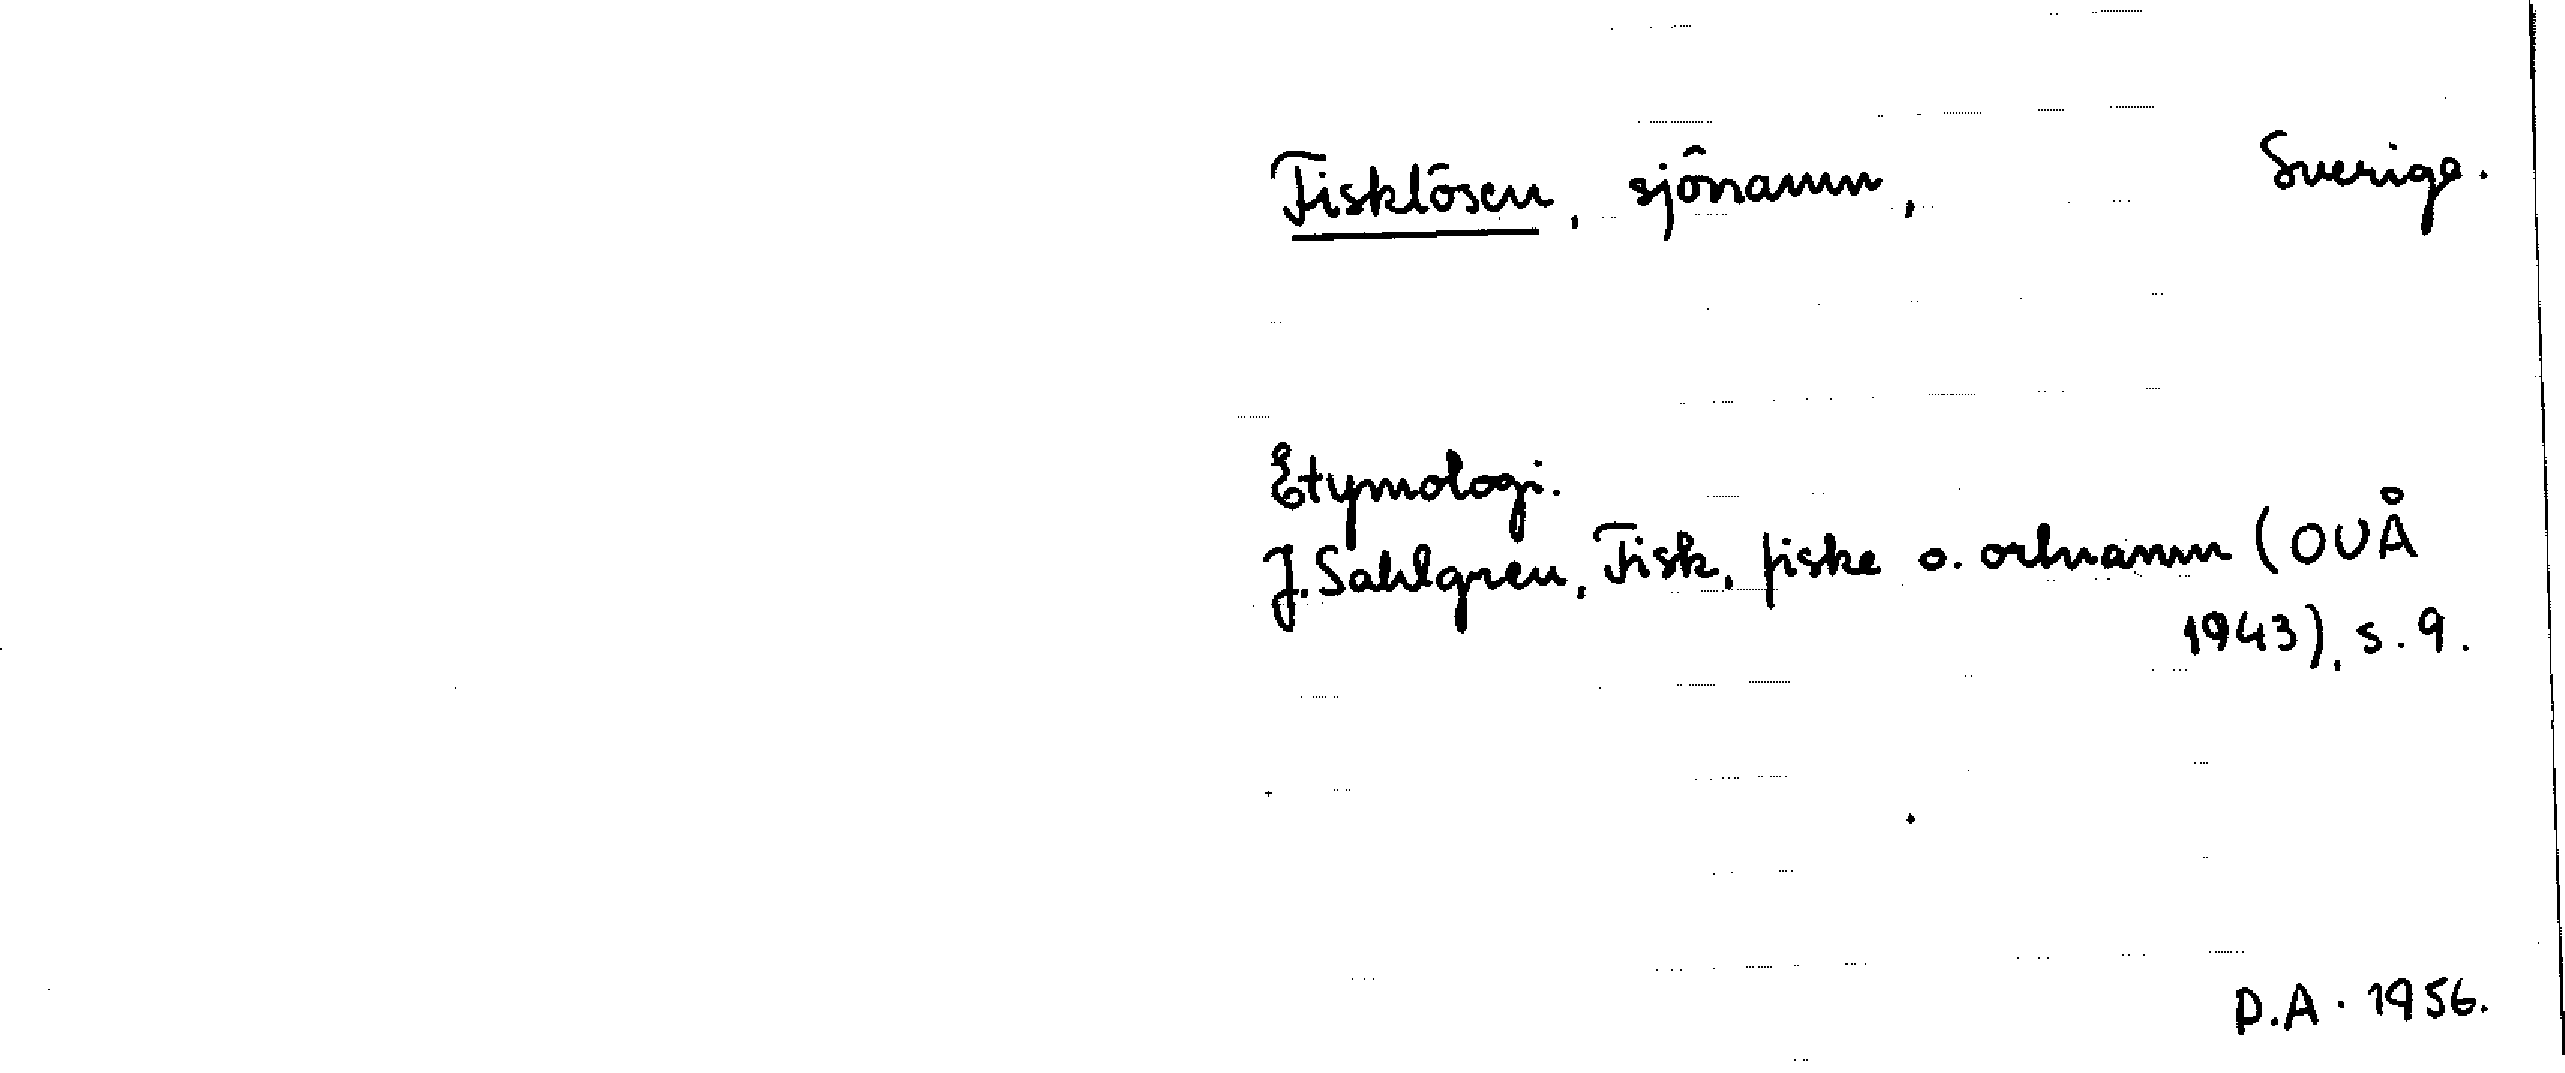 Fisklösen, sjönamn, Sverige.
Etymologi.
J. Sahlgren, Fisk, fiske o. ortnamn (OUÅ
1943), s. 9.
P.A. 1956.